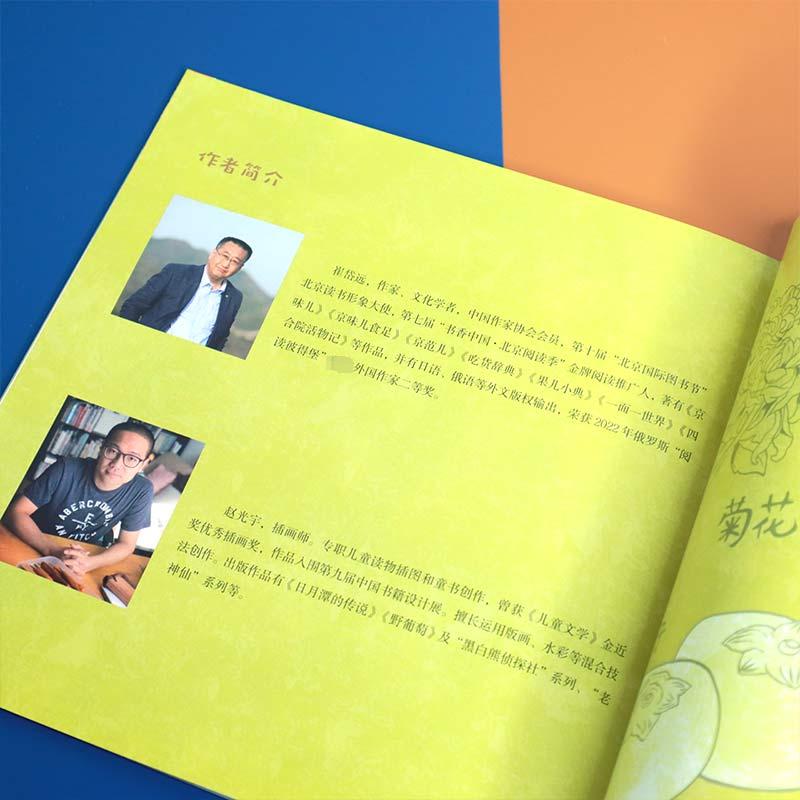 作者简介
崔岱远，作家、文化学者，中国作家协会会员，第十届“北京国际图书节”
北京读书形象大使，第七届“书香中国·北京阅读季”金牌阅读推广人，著有《京
味儿》《京味儿食足》《京范儿》《吃货辞典》《果儿小典》《一面一世界》《四
合院活物记》等作品，并有日语、俄语等外文版权输出，荣获2022年俄罗斯“阅
读彼得堡” 外国作家二等奖。
ABERCROMBIE
赵光宇，插画师。专职儿童读物插图和童书创作，曾获《儿童文学》金近
奖优秀插画奖，作品入围第九届中国书籍设计展。擅长运用版画、水彩等混合技
法创作。出版作品有《日月潭的传说》《野葡萄》及“黑白熊侦探社”系列、“老
神仙”系列等。
菊花